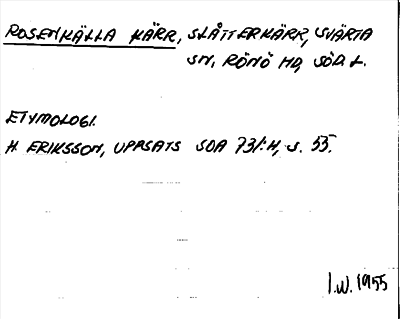 ROSENKÄLLA KÄRR, SLÅTTERKÄRR, SVÄRTA
SN, RÖNÖ HD, SÖD. L.
ETYMOLOGI.
H. ERIKSSON, UPPSATS SOA 731:H, S. 55.
I.W. 1955